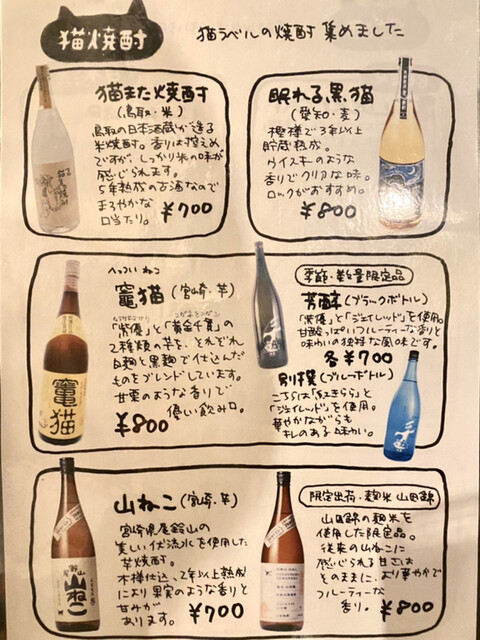 猫焼酎
猫ラベルの焼酎 集めました
猫また焼酎
(鳥取・米)
鳥取の日本酒蔵が造る
米焼酎。香りは控えめ
ですが、しっかり米の味が
感じられます。
5年熟成の古酒なので
まろやかな
口当たり。
¥700
眠れる黒猫
(愛知・麦)
樫樽で3年以上
貯蔵熟成。
ウイスキーのような
香りでクリアな味。
ロックがおすすめ。
¥800
へっつい ねこ
竈猫(宮崎・芋)
「紫優」と「黄金千貫」の
コガネセンガン
2種類の芋を、それぞれ
白麹と黒麹で仕込んだ
ものをブレンドしています。
甘栗のような香りで
優しい飲み口。
¥800
竈猫
季節・数量限定品
芳醇(ブラックボトル)
「紫優」と「ジェイレッド」を使用。
甘酸っぱいフルーティーな香りと
味わいの独特な風味です。
各¥700
別撰(ブルーボトル)
こちらは「べにきらら」と
「ジェイレッド」を使用。
華やかながらも
キレのある味わい。
山ねこ(宮崎・芋)
宮崎県尾鈴山の
美しい伏流水を使用した
芋焼酎。
木樽仕込、2年以上熟成
により果実のような香りと
甘みが
あります。
¥700
山ねこ
限定出荷・麹米 山田錦
山田錦の麹米を
使用した限定品。
従来の山ねこに
感じられる甘さは
そのままに、より華やかで
フルーティーな
香り。
¥800